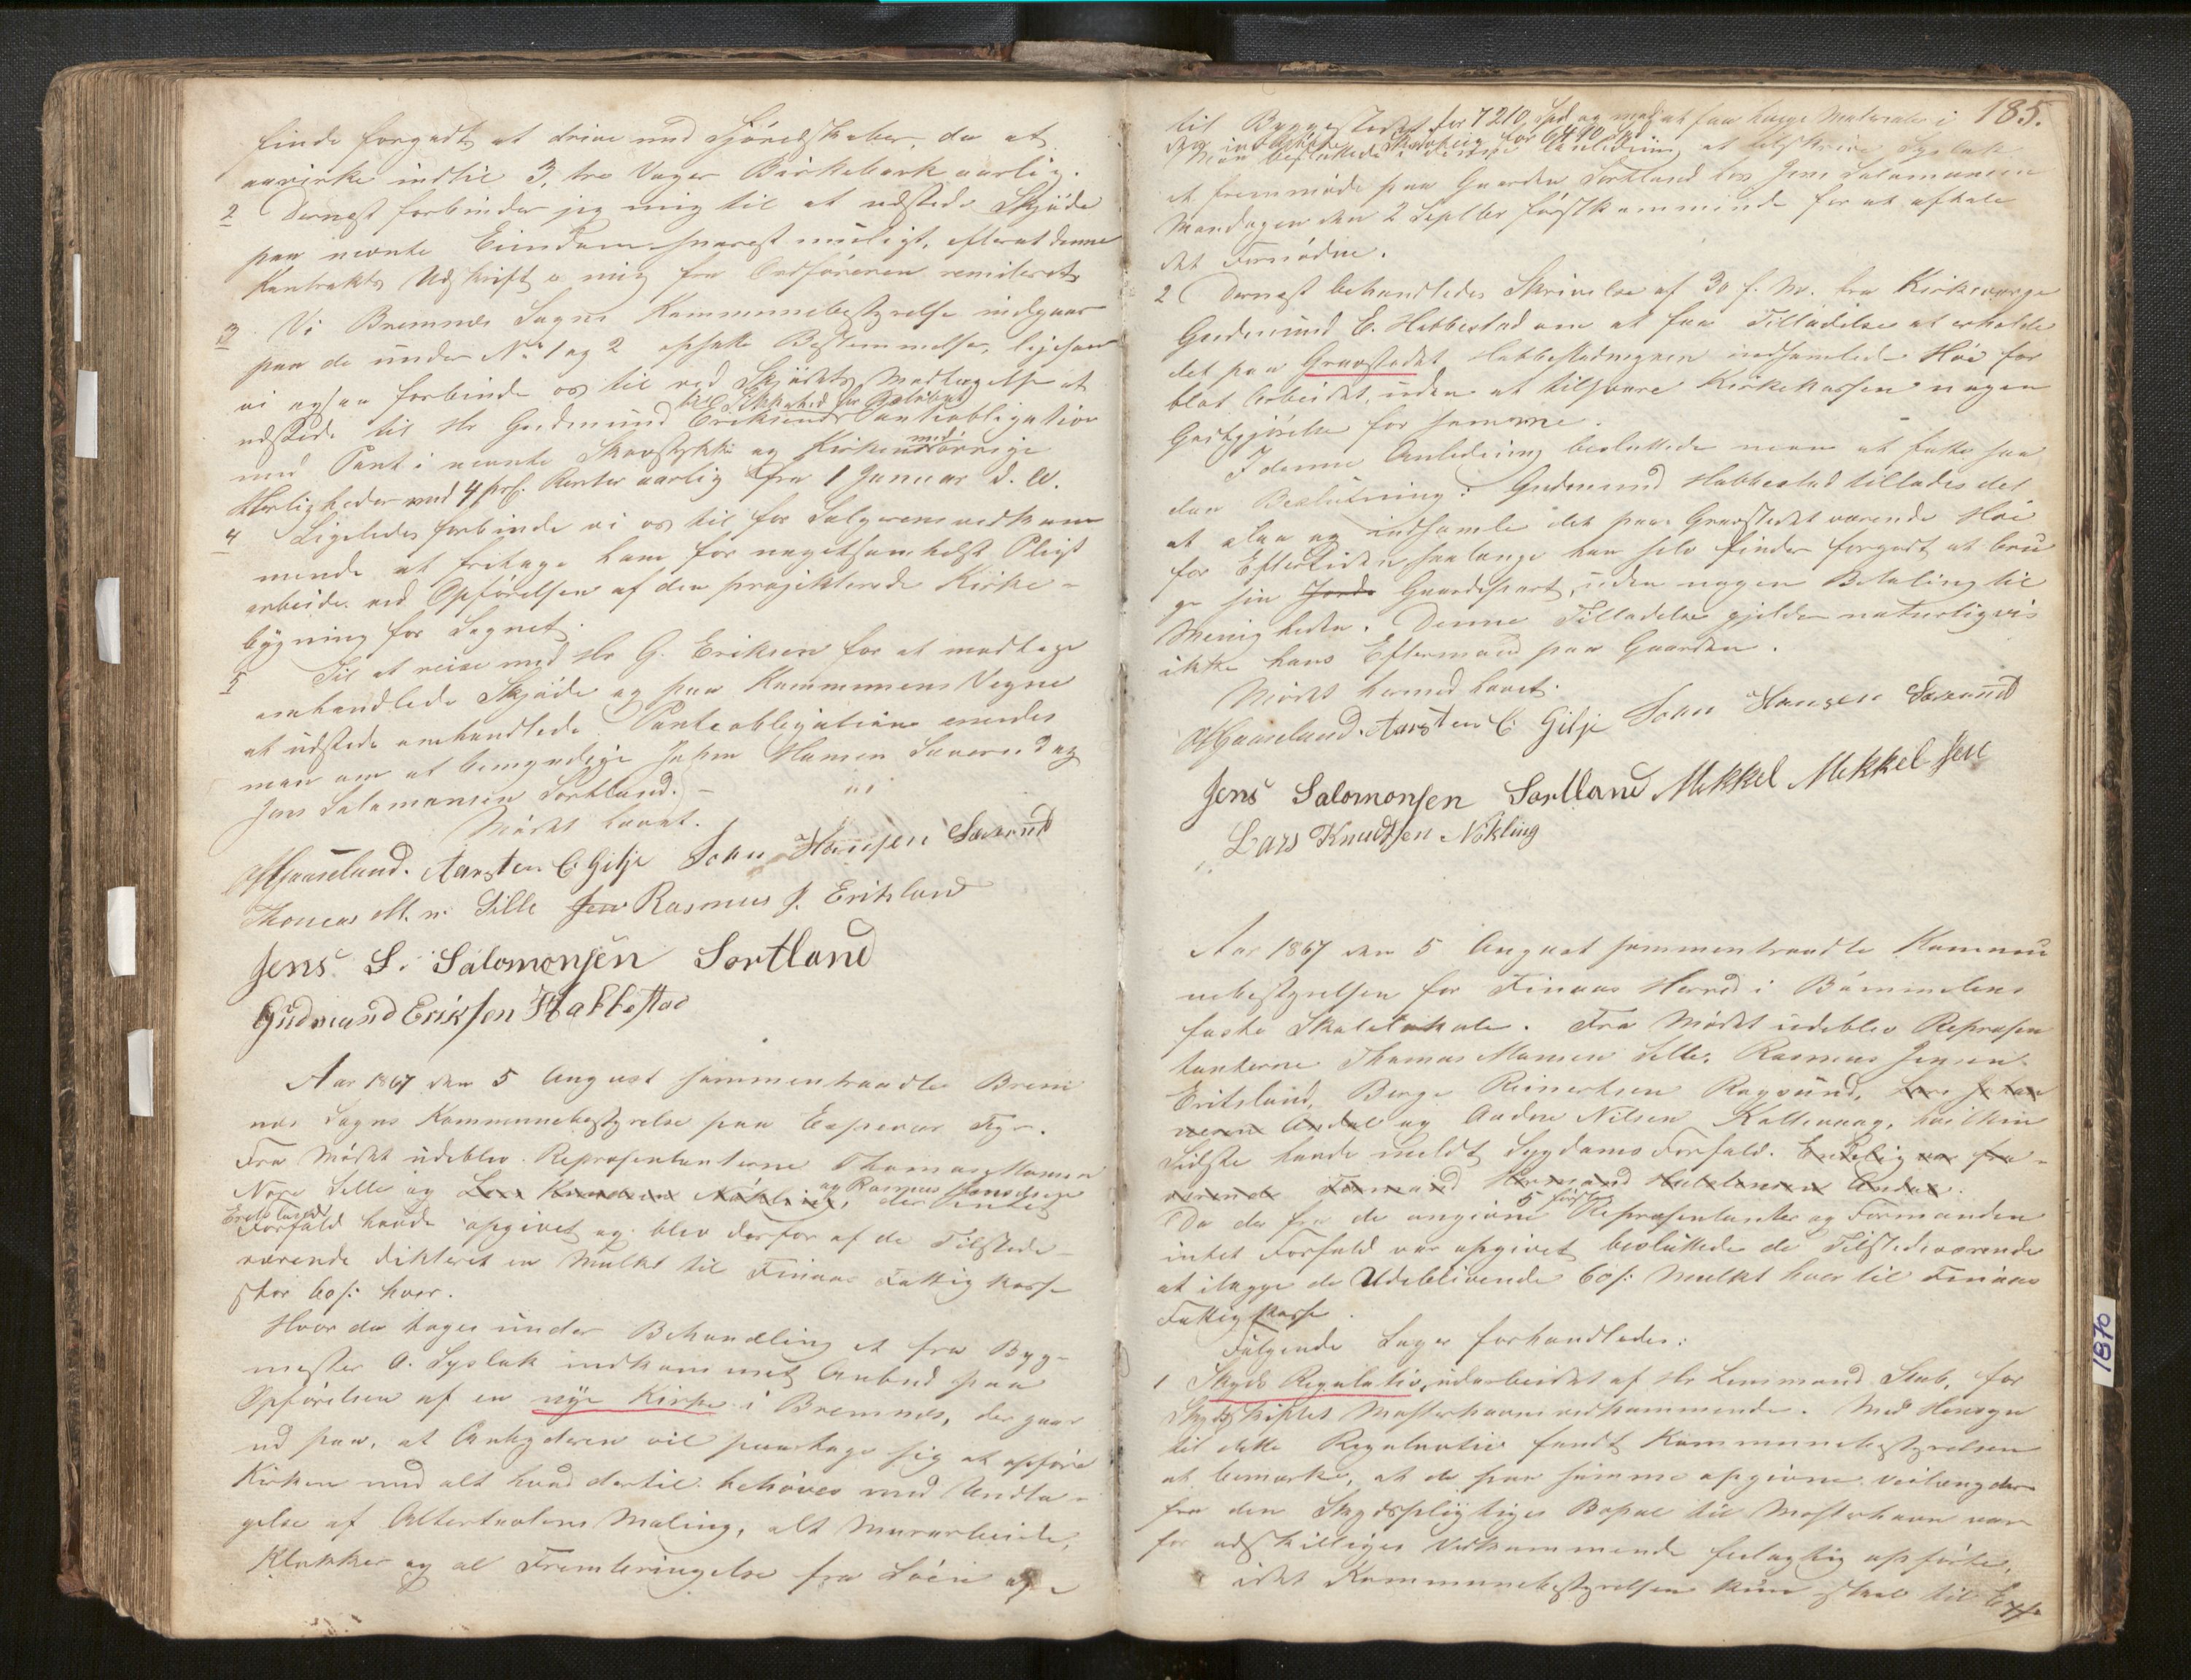 finde forgodt at drive med Gjøredskaber, da at
avvirke indtil 3, tre Voger Birkebark aarlig.
2 Dernæst forbinder jeg mig til at udstede Skjøde
paa nævnte Eiendom snarest muligt, efterat denne
Kontrakts Udskrift er mig fra Ordføreren remiteret
3 Vi Bremnes Sogns Kommunebestyrelse indgaar
paa de under No 1 og 2 opsatte Bestemmelser, ligesom
vi ogsaa forbinde os til ved Skjødets Modtagelse at
udstede til Hr Gudmund Eriksen til Sikkerhed for Beløbet Panteobligation
med Pant i nævnte Skovstykke og Kirkens med øvrige
Herligheder med 4 prC. Renter aarlig fra 1 Januar d. A.
4 Ligeledes forbinde vi os til for Sælgerens vedkom
mende at fritage ham for nogetsomhelst Pligt
arbeide ved Opførelsen af den projekterede Kirke-
bygning for Sognet.
5 Til at reise med Hr G. Eriksen for at modtage
omhandlede Skjøde og paa Kommunens Vegne
at udstede omhandlede Panteobligation enedes
man om at bemyndige John Hansen Sæverud og
Jens Salamonsen Sortland. –
Mødet hævet.
Aarsten C Gilje John Hansen Sæverud
Thomas M. n. Lille Jen Rasmus J. Eritsland
Jens S. Salomonsen Sortland
Gudmund Eriksen Habbestad
Aar 1867 den 5 August sammentraadte Brem
nes Sogns Kommunebestyrelse paa Espevær Fyr.
Fra Mødet udeblev Repræsentanterne Thomas Monsen
Nore Lille og Lars Knudsen Nøkling, og Rasmus Jensen der Intet
Eritsland
Forfald havde opgivet og blev derfor af de Tilstede-
værende dikteret en Mulkt til Finaas Fattigkasse
stor 60 s: hver.
Hvor da toges under Behandling et fra Byg-
mester A. Syslak indkommet Anbud paa
Opførelsen af en nye Kirke i Bremnes, der gaar
ud paa, at Anbyderen vil paatage sig at opføre
Kirken med alt hvad dertil behøves med Undta-
gelse af Altertavlens Maling, alt Murarbeide,
Klokker og al Frembringelse fra Søen og
185.
til Byggestedet for 7210 Spd og mod at faa hugge Materialer i
den indkjøbte Skovteig for 6490 Spd
Man besluttede i denne Anledning at tilskrive Syslak
at fremmøde paa Gaarden Sortland hos Jens Salamonsen
Mandagen den 2 Septbr førstkommende for at aftale
det Fornødne.
2 Dernæst behandledes Skrivelse af 30 f. M. fra Kirkeværge
Gudmund E. Habbestad om at faa Tilladelse at erholde
det paa Gravstedet Habbestadmyren indsamlede Høe for
blot Arbeidet, uden at tilsvare Kirkekassen nogen
Godtgjørelse for samme.
I denne Anledning besluttede man at fatte saa
dan Beslutning: Gudmund Habbestad tillades det
at slaa og indsamle det paa Gravstedet værende Høe
for Eftertiden, saalænge han selv finder forgodt at bru
ge sin Jorde Gaardspart, uden nogen Betaling til
Menigheden. Denne Tilladelse gjelder naturligvis
ikke hans Eftermand paa Gaarden.
Mødet hermed hævet.
Aarsten C. Gilje John Hansen Sæverud
Jens Salomonsen Sortland Mekkel Mekkelsen
Lars Knudtsen Nøkling
Aar 1867 den 5 August sammentraadte Kommu
nebestyrelsen for Finaas Herred i Bømmelens
faste Skolelokale. Fra Mødet udeblev Repræsen
tanterne Thomas Monsen Lille, Rasmus Jensen
Eritsland, Berge Reinertsen Røgsund,
og Andre Nilsen Kallevaag, hvilken
Sidste havde meldt Sygdoms Forfald. Endelig var fra-
værende Formand Hermand
Da der fra de angivne 5 første Repræsentanter og Formanden
intet Forfald var opgivet besluttede de Tilstedeværende
at ilægge de Udeblivende 60 s: Mulkt hver til Finaas
Fattigkasse.
Følgende Sager forhandledes:
1 Skyds Regulativ, udarbeidet af Hr Lensmand Stub, for
Skydsskiftet Mosterhavn vedkommende. Med Hensyn
til dette Regulativ fandt Kommunebestyrelsen
at bemærke, at de paa samme opgivne Veilængder
fra den Skydspligtiges Bopæl til Mosterhavn var
for adskilliges Vedkommende feilagtig opførte,
idet Kommunebestyrelsen kun skal til
1870